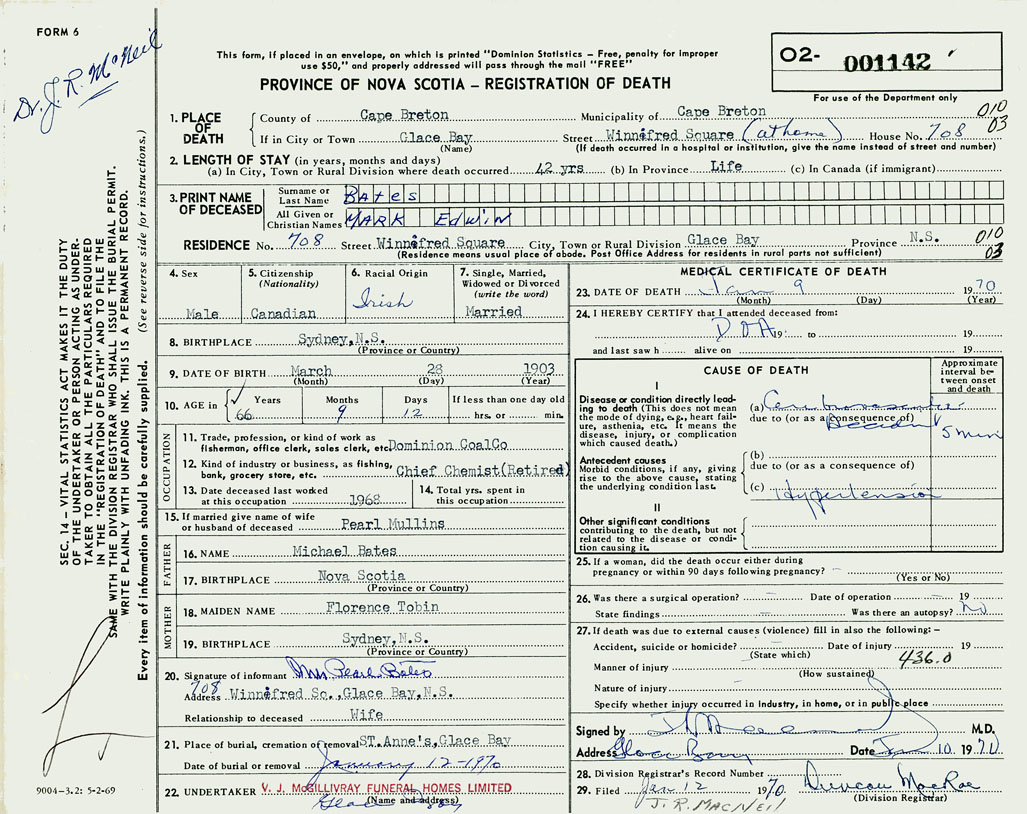 FORM 6
Dr. J. R. McNeil
This form, if placed in an envelope, on which is printed "Dominion Statistics – Free, penalty for improper
use $50," and properly addressed will pass through the mail "FREE"
PROVINCE OF NOVA SCOTIA – REGISTRATION OF DEATH
O2- 001142
For use of the Department only
1. PLACE OF DEATH
County of Cape Breton Municipality of Cape Breton 010
If in City or Town Glace Bay Street Winnifred Square (at home) House No. 708 03
(Name) (If death occurred in a hospital or institution, give the name instead of street and number)
2. LENGTH OF STAY (in years, months and days)
(a) In City, Town or Rural Division where death occurred 42 yrs (b) In Province Life (c) In Canada (if immigrant)
3. PRINT NAME OF DECEASED
Surname or Last Name Bates
All Given or Christian Names MARK Edwin
RESIDENCE No. 708 Street Winnifred Square City, Town or Rural Division Glace Bay Province N.S. 010
(Residence means usual place of abode. Post Office Address for residents in rural parts not sufficient) 03
4. Sex Male
5. Citizenship (Nationality) Canadian
6. Racial Origin Irish
7. Single, Married, Widowed or Divorced (write the word) Married
8. BIRTHPLACE Sydney, N.S.
(Province or Country)
9. DATE OF BIRTH March 28 1903
(Month) (Day) (Year)
10. AGE in Years Months Days If less than one day old
66 9 12 hrs. or min.
OCCUPATION
11. Trade, profession, or kind of work as
fisherman, office clerk, sales clerk, etc. Dominion CoalCo
12. Kind of industry or business, as fishing,
bank, grocery store, etc. Chief Chemist(Retired)
13. Date deceased last worked
at this occupation 1968
14. Total yrs. spent in
this occupation
15. If married give name of wife
or husband of deceased Pearl Mullins
FATHER
16. NAME Michael Bates
17. BIRTHPLACE Nova Scotia
(Province or Country)
MOTHER
18. MAIDEN NAME Florence Tobin
19. BIRTHPLACE Sydney, N.S.
(Province or Country)
20. Signature of informant Mrs Pearl Bates
Address 708 Winnifred Sc., Glace Bay, N.S.
Relationship to deceased Wife
21. Place of burial, cremation or removal ST. Anne's, Glace Bay
Date of burial or removal January 12-1970
22. UNDERTAKER V. J. McGILLIVRAY FUNERAL HOMES LIMITED
(Name and address) Glace Bay
MEDICAL CERTIFICATE OF DEATH
23. DATE OF DEATH Jan 9 1970
(Month) (Day) (Year)
24. I HEREBY CERTIFY that I attended deceased from:
DOA 19 to 19
and last saw h alive on 19
CAUSE OF DEATH
Approximate interval between onset and death
I
Disease or condition directly leading
to death (This does not mean
the mode of dying, e.g., heart failure,
asthenia, etc. It means the
disease, injury, or complication
which caused death.)
(a) Cerebrovascular
due to (or as a consequence of)
Accident 5 min
Antecedent causes
Morbid conditions, if any, giving
rise to the above cause, stating
the underlying condition last.
(b)
due to (or as a consequence of)
(c) Hypertension
II
Other significant conditions
contributing to the death, but not
related to the disease or condition
causing it.
25. If a woman, did the death occur either during
pregnancy or within 90 days following pregnancy? –
(Yes or No)
26. Was there a surgical operation? – Date of operation – 19
State findings Was there an autopsy? No
27. If death was due to external causes (violence) fill in also the following: –
Accident, suicide or homicide? Date of injury 19
(State which) 436.0
Manner of injury
(How sustained)
Nature of injury
Specify whether injury occurred in Industry, in home, or in public place
Signed by M.D.
Address Glace Bay Date Jan 10. 1970
28. Division Registrar's Record Number 7
29. Filed Jan 12 1970 Duncan MacRae
(Division Registrar)
J. R. MACNEIL
SEC. 14 – VITAL STATISTICS ACT MAKES IT THE DUTY
OF THE UNDERTAKER OR PERSON ACTING AS UNDERTAKER
TO OBTAIN ALL THE PARTICULARS REQUIRED
IN THE "REGISTRATION OF DEATH" AND TO FILE THE
SAME WITH THE DIVISION REGISTRAR WHO SHALL ISSUE THE BURIAL PERMIT.
WRITE PLAINLY WITH UNFADING INK. THIS IS A PERMANENT RECORD.
Every item of information should be carefully supplied. (See reverse side for instructions.)
9004-3.2: 5-2-69